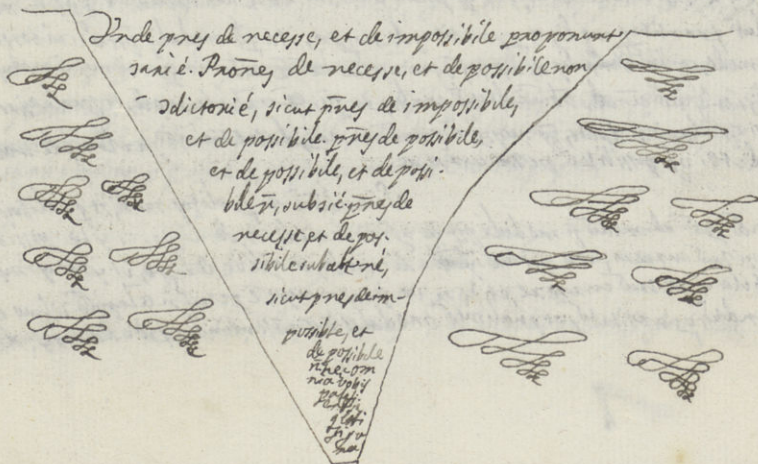 Unde pn̄es de necesse, et de impossibile proponunt
ɔ̃arié. Prōnes de necesse, et de possibile non
ɔ̃dictorié, sicut pn̄es de impossibile,
et de possibile. pn̄es de possibile,
et de possibile, et de possi-
bile n̄, subɔ̃ié pn̄es de
necesse et de pos-
sibile subalt̄né,
sicut pn̄es de im-
possibile, et
de possibile
n̄ hec om
nia vobis